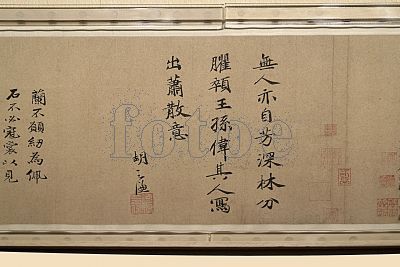 無人亦自芳深林分
臞類王孫偉其人寫
出蕭散意
胡
蘭不願紉為佩
石不必寵裳以見
fotoe